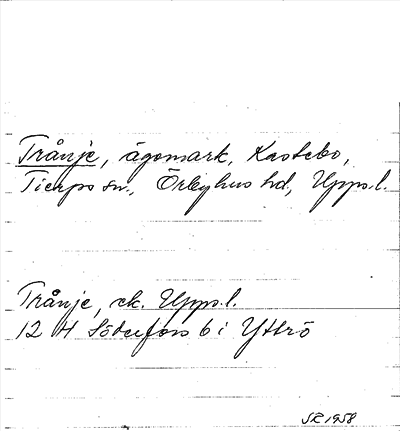 Trånje, ägomark, Kastebo,
Tierps sn., Örbyhus hd, Upps.l.
Trånje, ek. Upps.l.
12 H Söderfors 6 i Yttrö
SR 1958